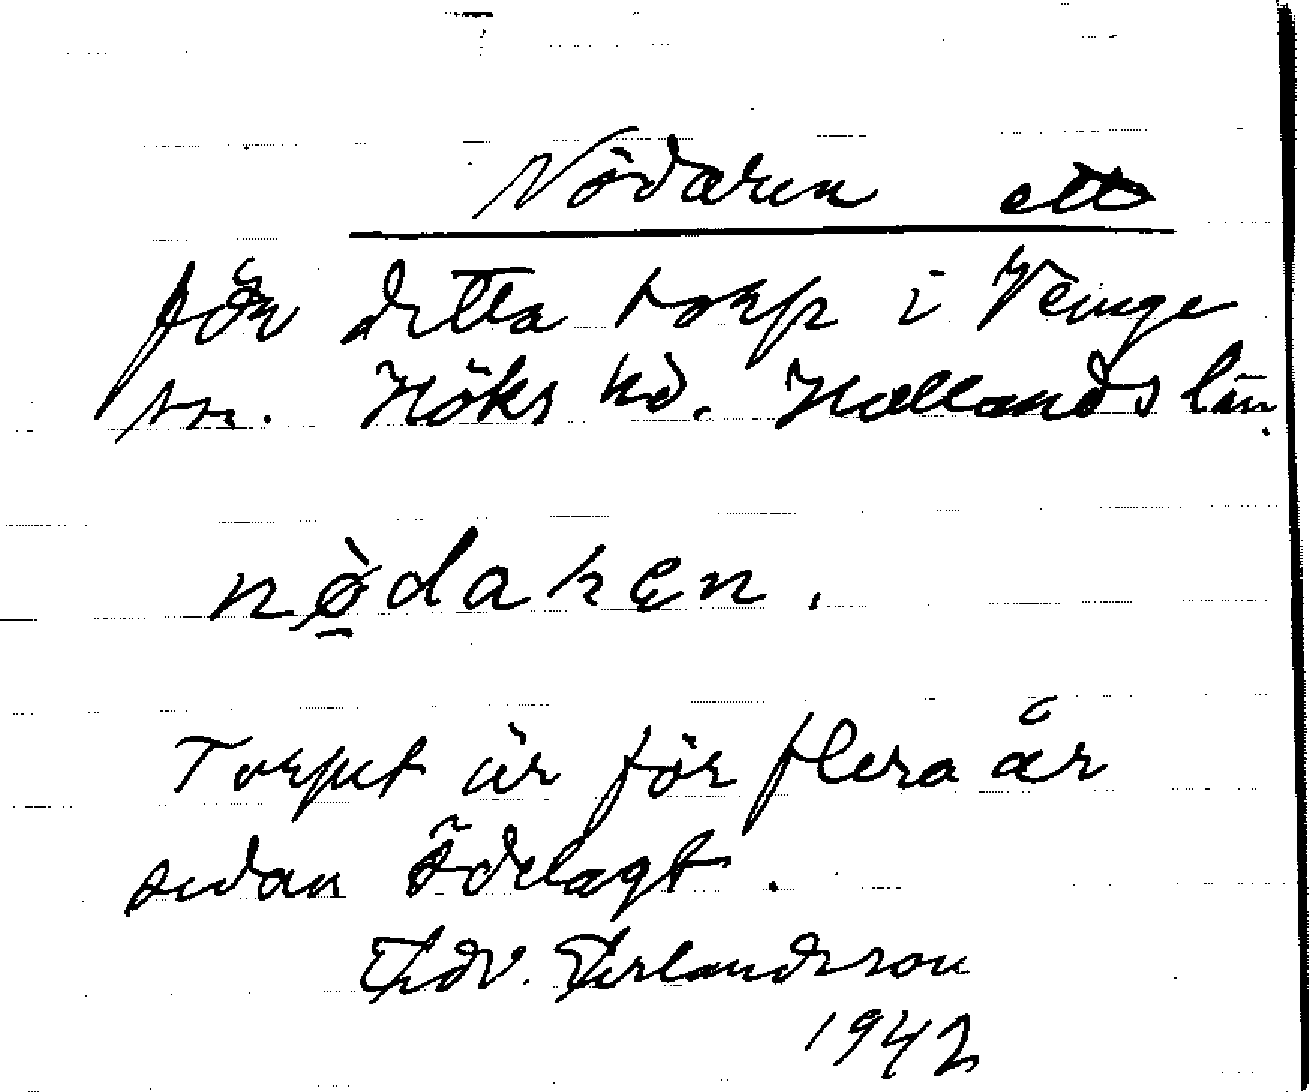 Nödaren ett
för detta torp i Veinge
sn. Höks hd. Hallands län.
nø̀daren.
Torpet är för flera år
sedan ödelagt.
Edv. Erlandsson
1942